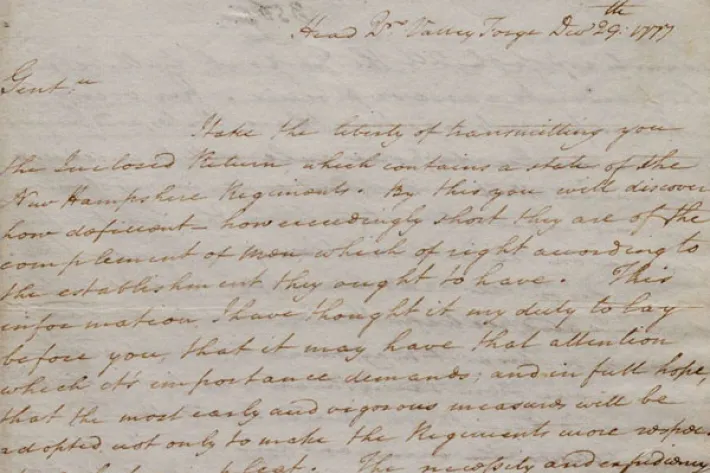 Head Qrs Valley Forge Decr 29th: 1777
Gentn
I take the liberty of transmitting you
the Inclosed Return, which contains a state of the
New Hampshire Regiments. By this you will discover
how deficient – how exceedingly short they are of the
complement of men which of right according to
the establishment they ought to have. This
information, I have thought it my duty to lay
before you, that it may have that attention
which it's importance demands; and in full hope,
that the most early and vigorous measures will be
adopted, not only to make the Regiments more respec-
The necessity and expediency